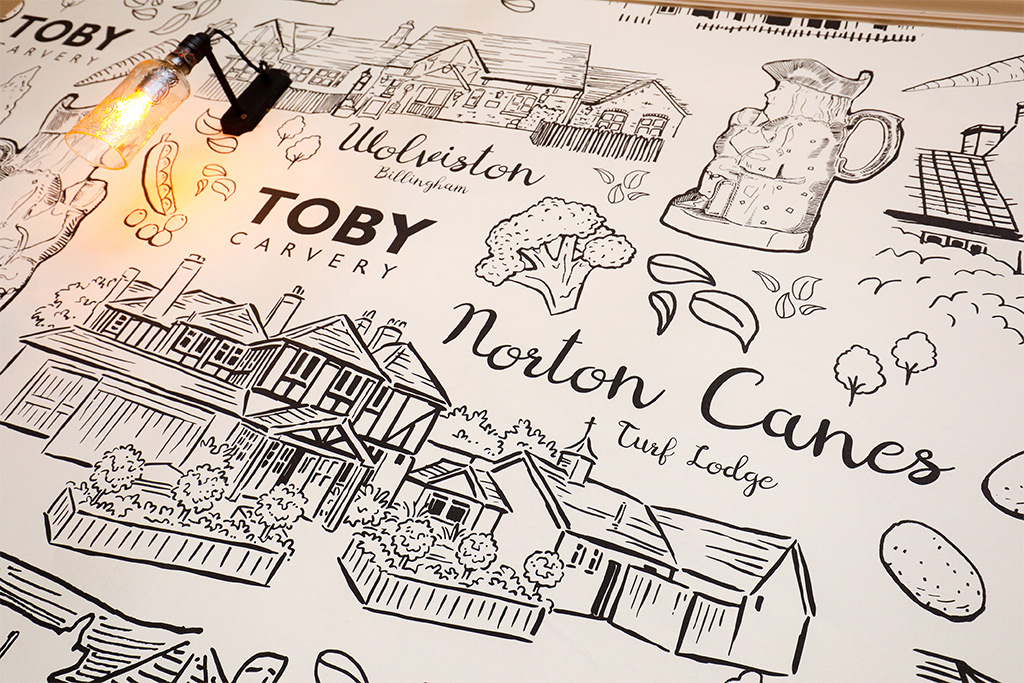 TOBY
CARVERY
Wolviston
Billingham
TOBY
CARVERY
Norton Canes
Turf Lodge